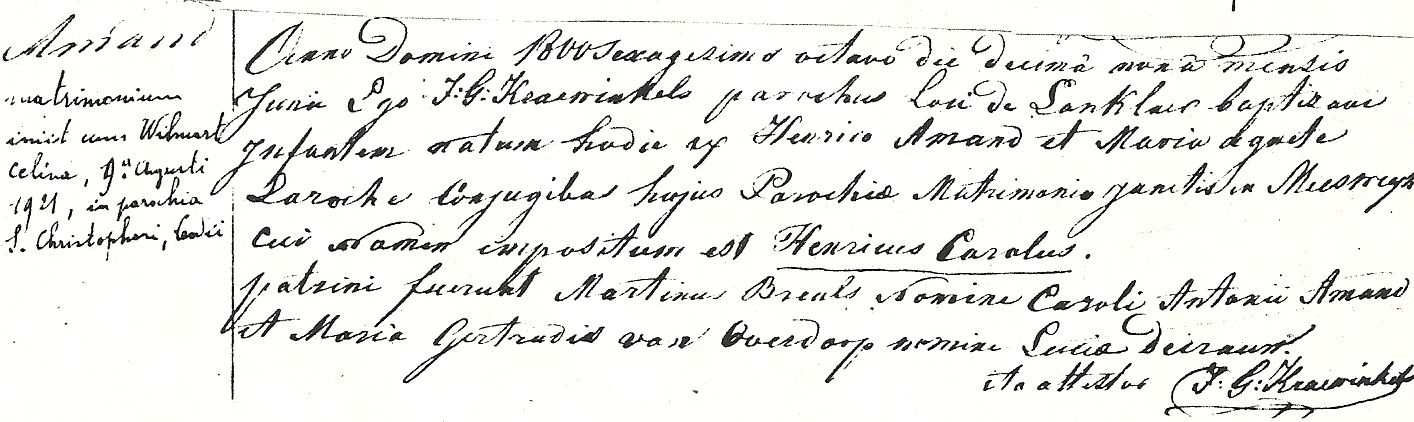 Amand
matrimonium
iniit cum Wilmart
Celina, 9a Augusti
1921, in parochia
S. Christophori,
Anno Domini 1800 Sexagesimo octavo die decimâ nonâ mensis
Junii Ego J: G: Kraewinkels parochus loci de Lanklaer baptizavi
Infantem natum hodie ex Henrico Amand et Maria Agnete
Laroche Conjugibus hujus Parochiæ Matrimonio junctis in Meeswyk
cui nomen impositum est Henricus Carolus.
patrini fuerunt Martinus Breuls nomine Caroli Antonii Amand
et Maria Gertrudis van Overdorp nomine Luciæ
ita attestor J: G: Kraewinkels